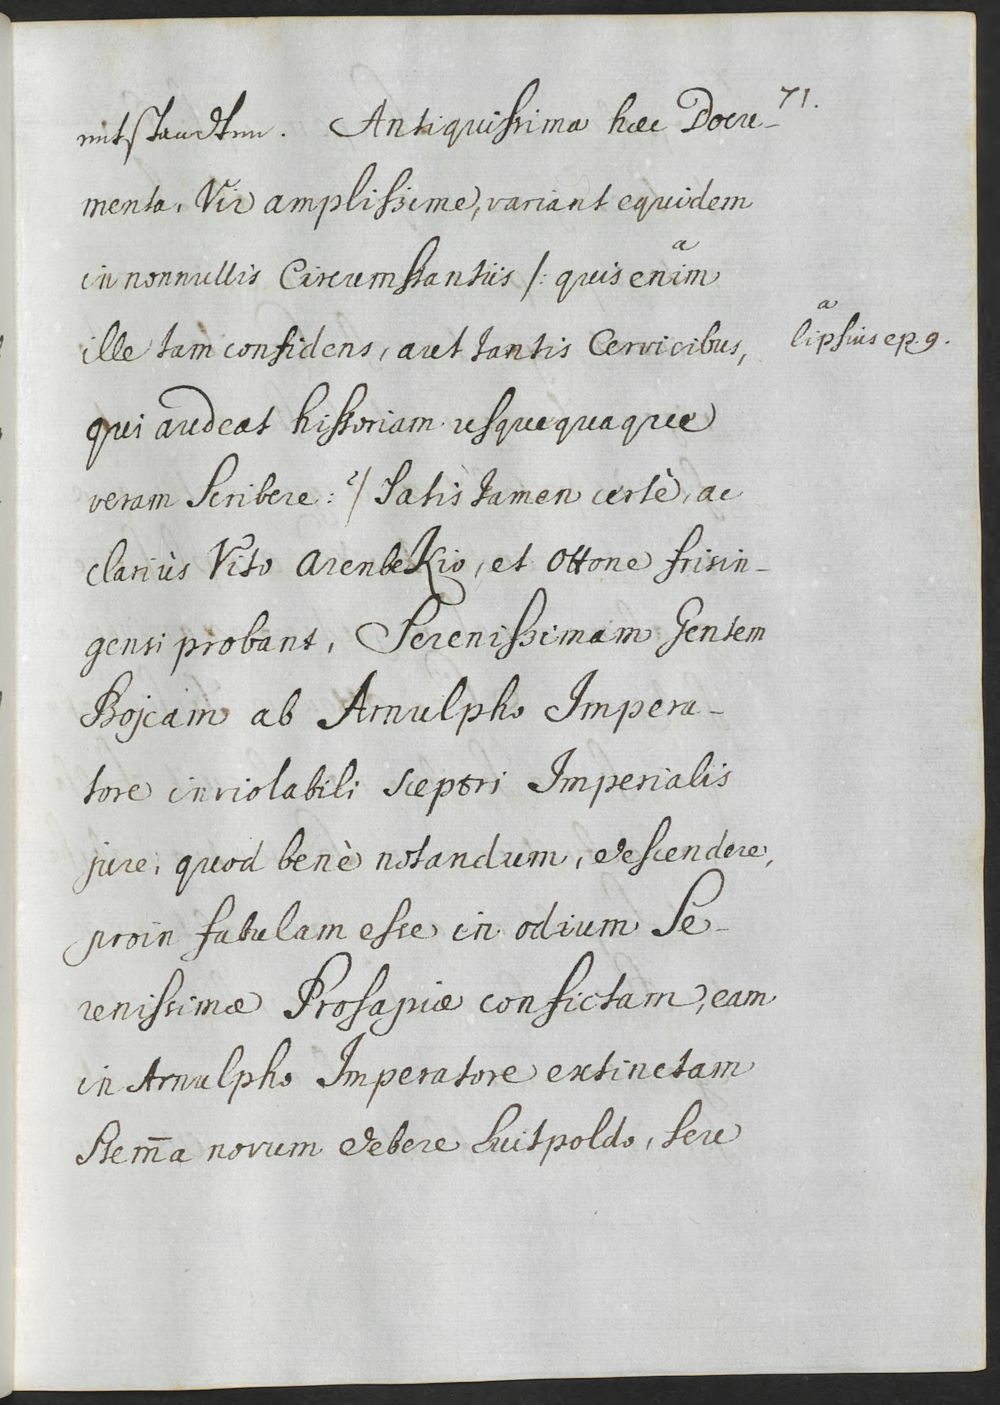 71.
entstandten. Antiquissima haec Docu-
menta, Vir amplissime, variant equidem
in nonnullis Circumstantiis /: quis enim a
ille tam confidens, aut tantis Cervicibus,
a lipsius ep. 9.
qui audeat historiam usquequaque
veram Scribere :/ Satis tamen certè, ac
clariùs Vito ArenbeKio, et Ottone frisin-
gensi probant, Serenissimam Gentem
Bojcam ab Arnulpho Impera-
tore inviolabili sceptri Imperialis
jure, quod benè notandum, descendere,
proin fabulam esse in odium Se-
renissimæ Prosapiæ confictam, eam
in Arnulpho Imperatore extinctam
Stem̄a novum debere Luitpoldo, seu